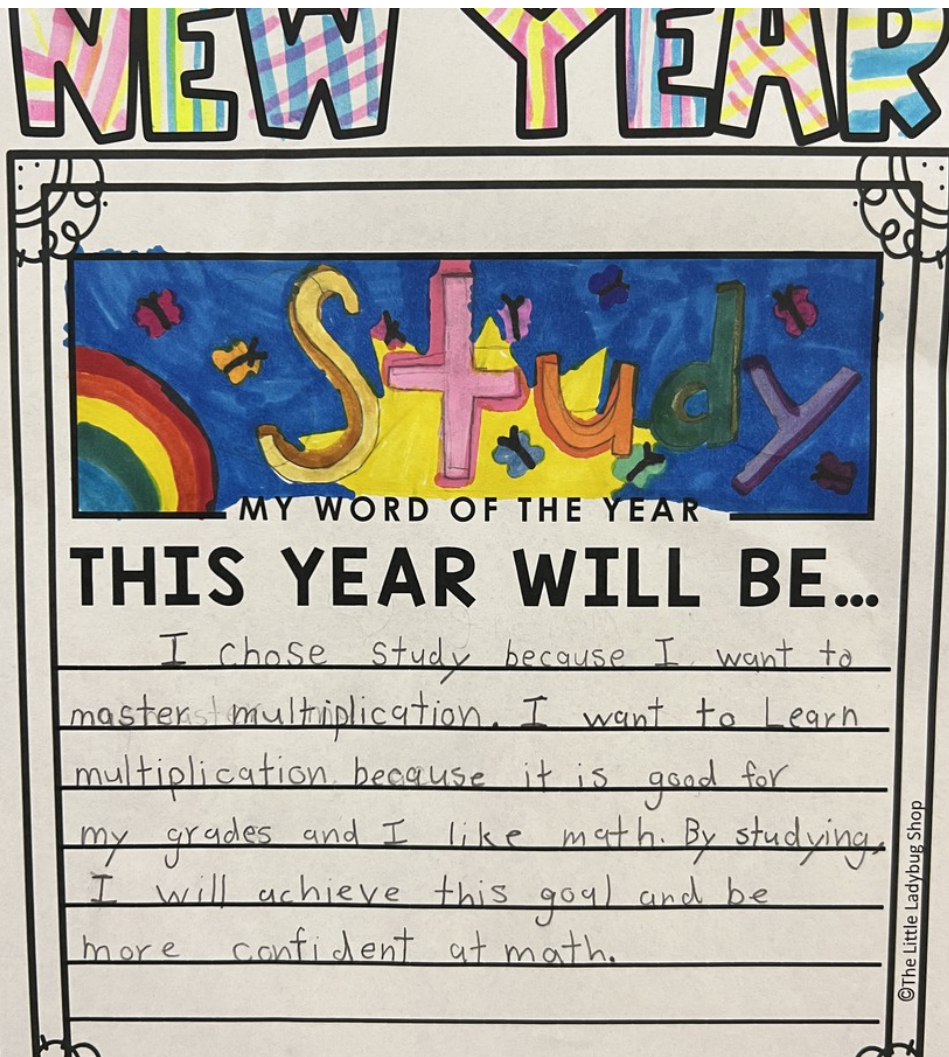 NEW YEAR
Study
MY WORD OF THE YEAR
THIS YEAR WILL BE...
I chose study because I want to
master multiplication. I want to Learn
multiplication because it is good for
my grades and I like math. By studying,
I will achieve this goal and be
more confident at math.
©The Little Ladybug Shop